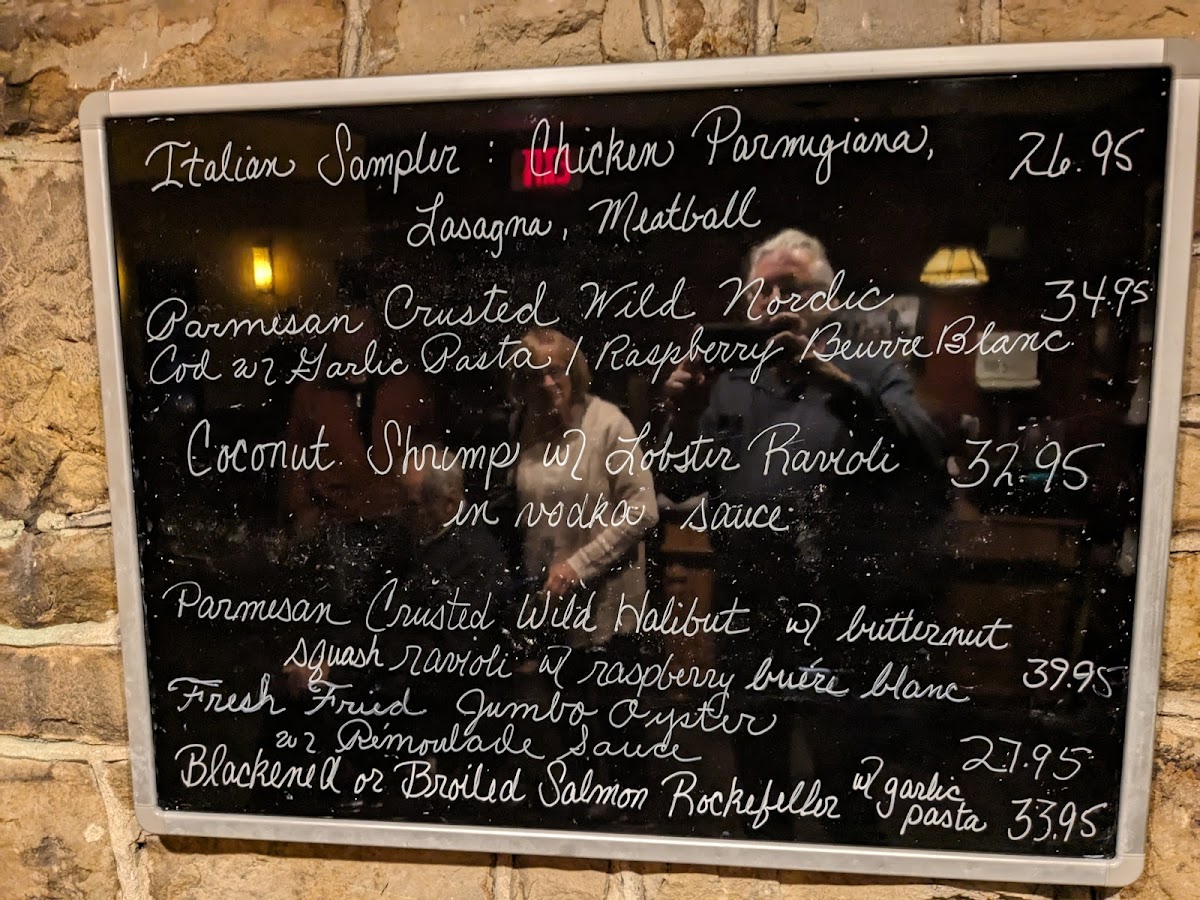 Italian Sampler : Chicken Parmigiana, 26.95
Lasagna, Meatball
Parmesan Crusted Wild Nordic 34.95
Cod w/ Garlic Pasta / Raspberry Beurre Blanc
Coconut Shrimp w/ Lobster Ravioli 32.95
in vodka sauce
Parmesan Crusted Wild Halibut w/ butternut
squash ravioli w/ raspberry buére blanc 39.95
Fresh Fried Jumbo Oyster
w/ Rémoulade Sauce 27.95
Blackened or Broiled Salmon Rockefeller w/ garlic
pasta 33.95